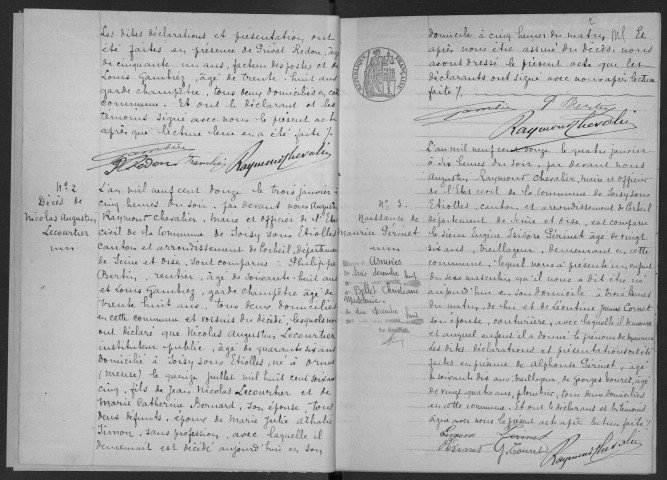 Les dites déclarations et présentation ont
été faites en présence de Préval Redon, âgé
de cinquante un ans, facteur des postes et de
Louis Gambiez, âgé de trente huit ans
garde champêtre, tous deux domiciliés en cette
commune. Et ont le déclarant et les
témoins signé avec nous le présent acte
après que lecture leur en a été faite /.
Gambier
P. Redon Raymond Chevalier
N° 2
Décès de
Nicolas Augustin
Lecourtier
L'an mil neuf cent douze le trois janvier à
cinq heures du soir, par devant nous Augustin
Raymont Chevalier, maire et officier de l'Etat
civil de la Commune de Soisy sous Etiolles
canton et arrondissement de Corbeil, département
de Seine et Oise, sont comparus: Philippe
Bertin, rentier, âgé de soixante huit ans
et Louis Gambiez, garde champêtre âgé de
trente huit ans, tous deux domiciliés
en cette commune et voisins du décédé, lesquels nous
ont déclaré que Nicolas Augustin Lecourtier
instituteur public, âgé de quarante six ans
domicilié à Soisy sous Etiolles, né à Ornes
(Meuse) le quinze juillet mil huit cent soixante
cinq, fils de Jean Nicolas Lecourtier et de
Marie Catherine Bernard, son épouse, tous
deux défunts, époux de Marie Julie Athalie
Simon, sans profession, avec laquelle il
demeurait est décédé aujourd'hui en son
2
domicile à cinq heures du matin. Et
après nous être assuré du décès, nous
avons dressé le présent acte que les
déclarants ont signé avec nous après lecture
faite /.
REPUBLIQUE FRANÇAISE
Gambier P. Bertin
Raymond Chevalier
N° 3.
Naissance de
Maurice Périnet
L'an mil neuf cent douze, le quatre janvier
à dix heures du soir, par devant nous
Augustin Raymont Chevalier, maire et officier
de l'Etat civil de la commune de Soisy sous
Etiolles, canton et arrondissement de Corbeil
département de Seine et Oise, est comparu
le sieur Eugène Isidore Périnet âgé de vingt
six ans, treillageur, demeurant en cette
commune, lequel nous a présenté un enfant
du sexe masculin qu'il nous a dit être né
aujourd'hui en son domicile à trois heures
du matin, de lui et de Léontine Jeanne Cornet
son épouse, couturière, avec laquelle il demeure
et auquel enfant il a donné le prénom de Maurice
Les dites déclarations et présentation ont été
faites en présence de Alphonse Périnet, âgé
de soixante dix ans, treillageur, de Georges Touret, âgé
de vingt quatre ans, plombier, tous deux domiciliés
en cette commune. Et ont le déclarant et les témoins
signé avec nous le présent acte après lecture faite /.
Eugène Périnet
Périnet G. Touret Raymond Chevalier